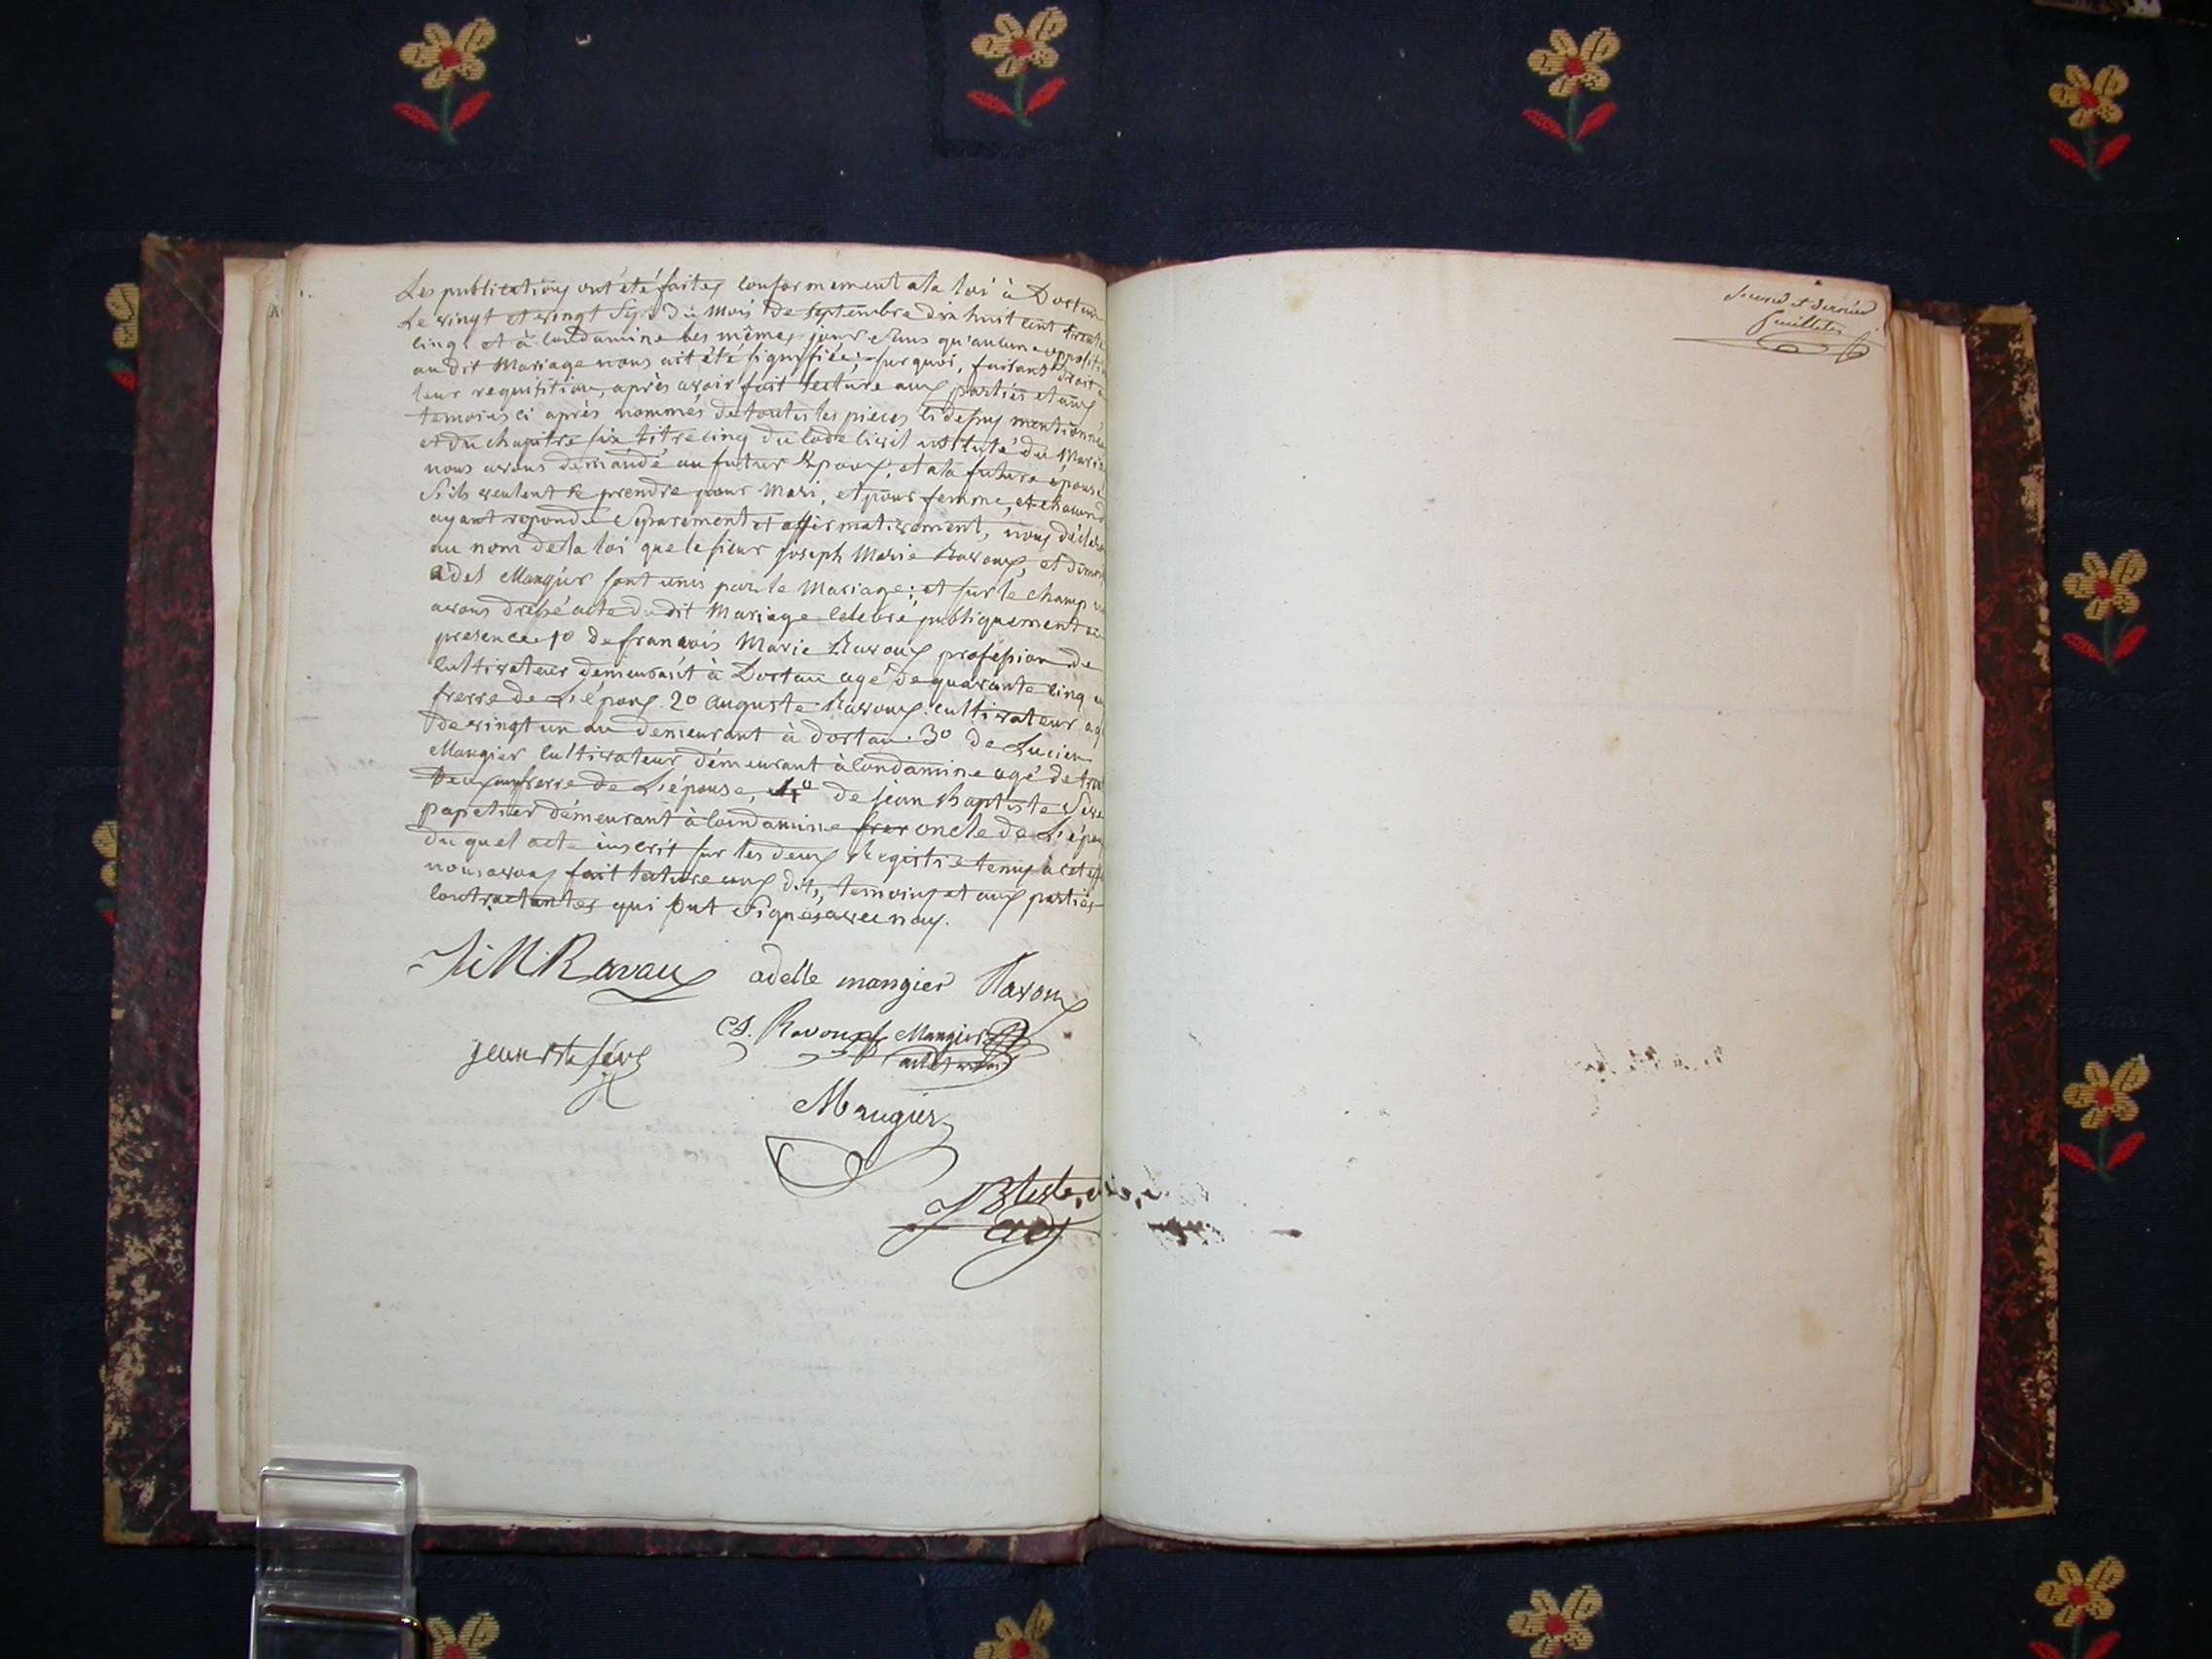 Les publications ont été faites conformement a la loi à Dortan
Le vingt et vingt Sept du Mois de Septembre dix huit cent trente
cinq. et à Condamine les mêmes jour Sans qu'aucune oppositi
au dit Mariage nous ait été signifiée; sur quoi, faisant droit à
leur requisition, après avoir fait lecture aux parties et aux
temoins ci après nommés de toutes les pieces ci dessus mentionnée
et du chapitre six titre cinq du Code Civil intitulé du Maria
nous avons demandé au futur Epoux, et a la future épouse
S'ils veulent se prendre pour Mari, et pour femme, et chacun d
ayant repondu Séparement et affirmativement, nous déclaro
au nom de la loi que le sieur joseph Marie Ravoux, et
adel Mangier sont unis par le Mariage; et sur le champ
avons dressé acte du dit Mariage celebré publiquement en
presence 1o de françois Marie Ravoux profession de
cultivateur demeurant à Dortan agé de quarante cinq
frerre de L'époux. 2o auguste Ravoux cultivateur ag
de vingt un an demeurant à dortan. 3o de Lucien
Mangier cultivateur démeurant à Condamine agé de
frerre de L'épouse, 4o de jean Baptiste Seve
papetier démeurant à Condamine frer oncle de L'épou
du quel acte inscrit sur les deux Registre tenus à cet eff
nous avons fait lecture aux dits temoins et aux parties
contractantes qui ont Signés avec nous.
J M Ravoux adelle mangier Ravoux
Ravoux Mangier
jean Bte séve
Mangier
second et dernier
feuillets